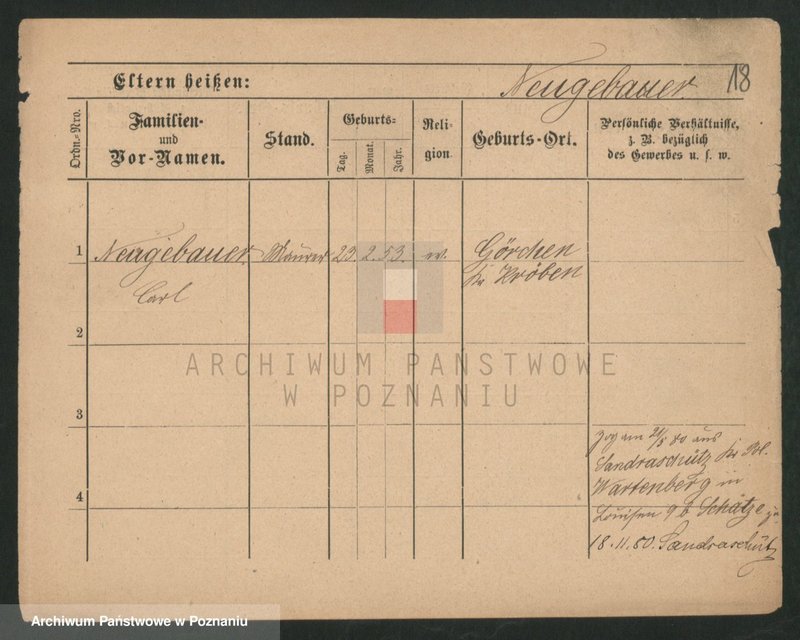 Eltern heißen:
Neugebauer
18
Ordn.-Nro.
Familien-
und
Vor-Namen.
Stand.
Geburts-
Tag.
Monat.
Jahr.
Reli-
gion
Geburts-Ort.
Persönliche Verhältnisse,
z. B. bezüglich
des Gewerbes u. s. w.
1
Neugebauer
Maurer
23
2.
53.
Görchen
Kr Kröben
Carl
2
ARCHIWUM PAŃSTWOWE
W POZNANIU
3
zog am 21/5 80 aus
Sandraschütz Kr Pol.
Wartenberg in
4
Louisen 9 b Schätze
18.11.80. Sandraschütz
Archiwum Państwowe w Poznaniu